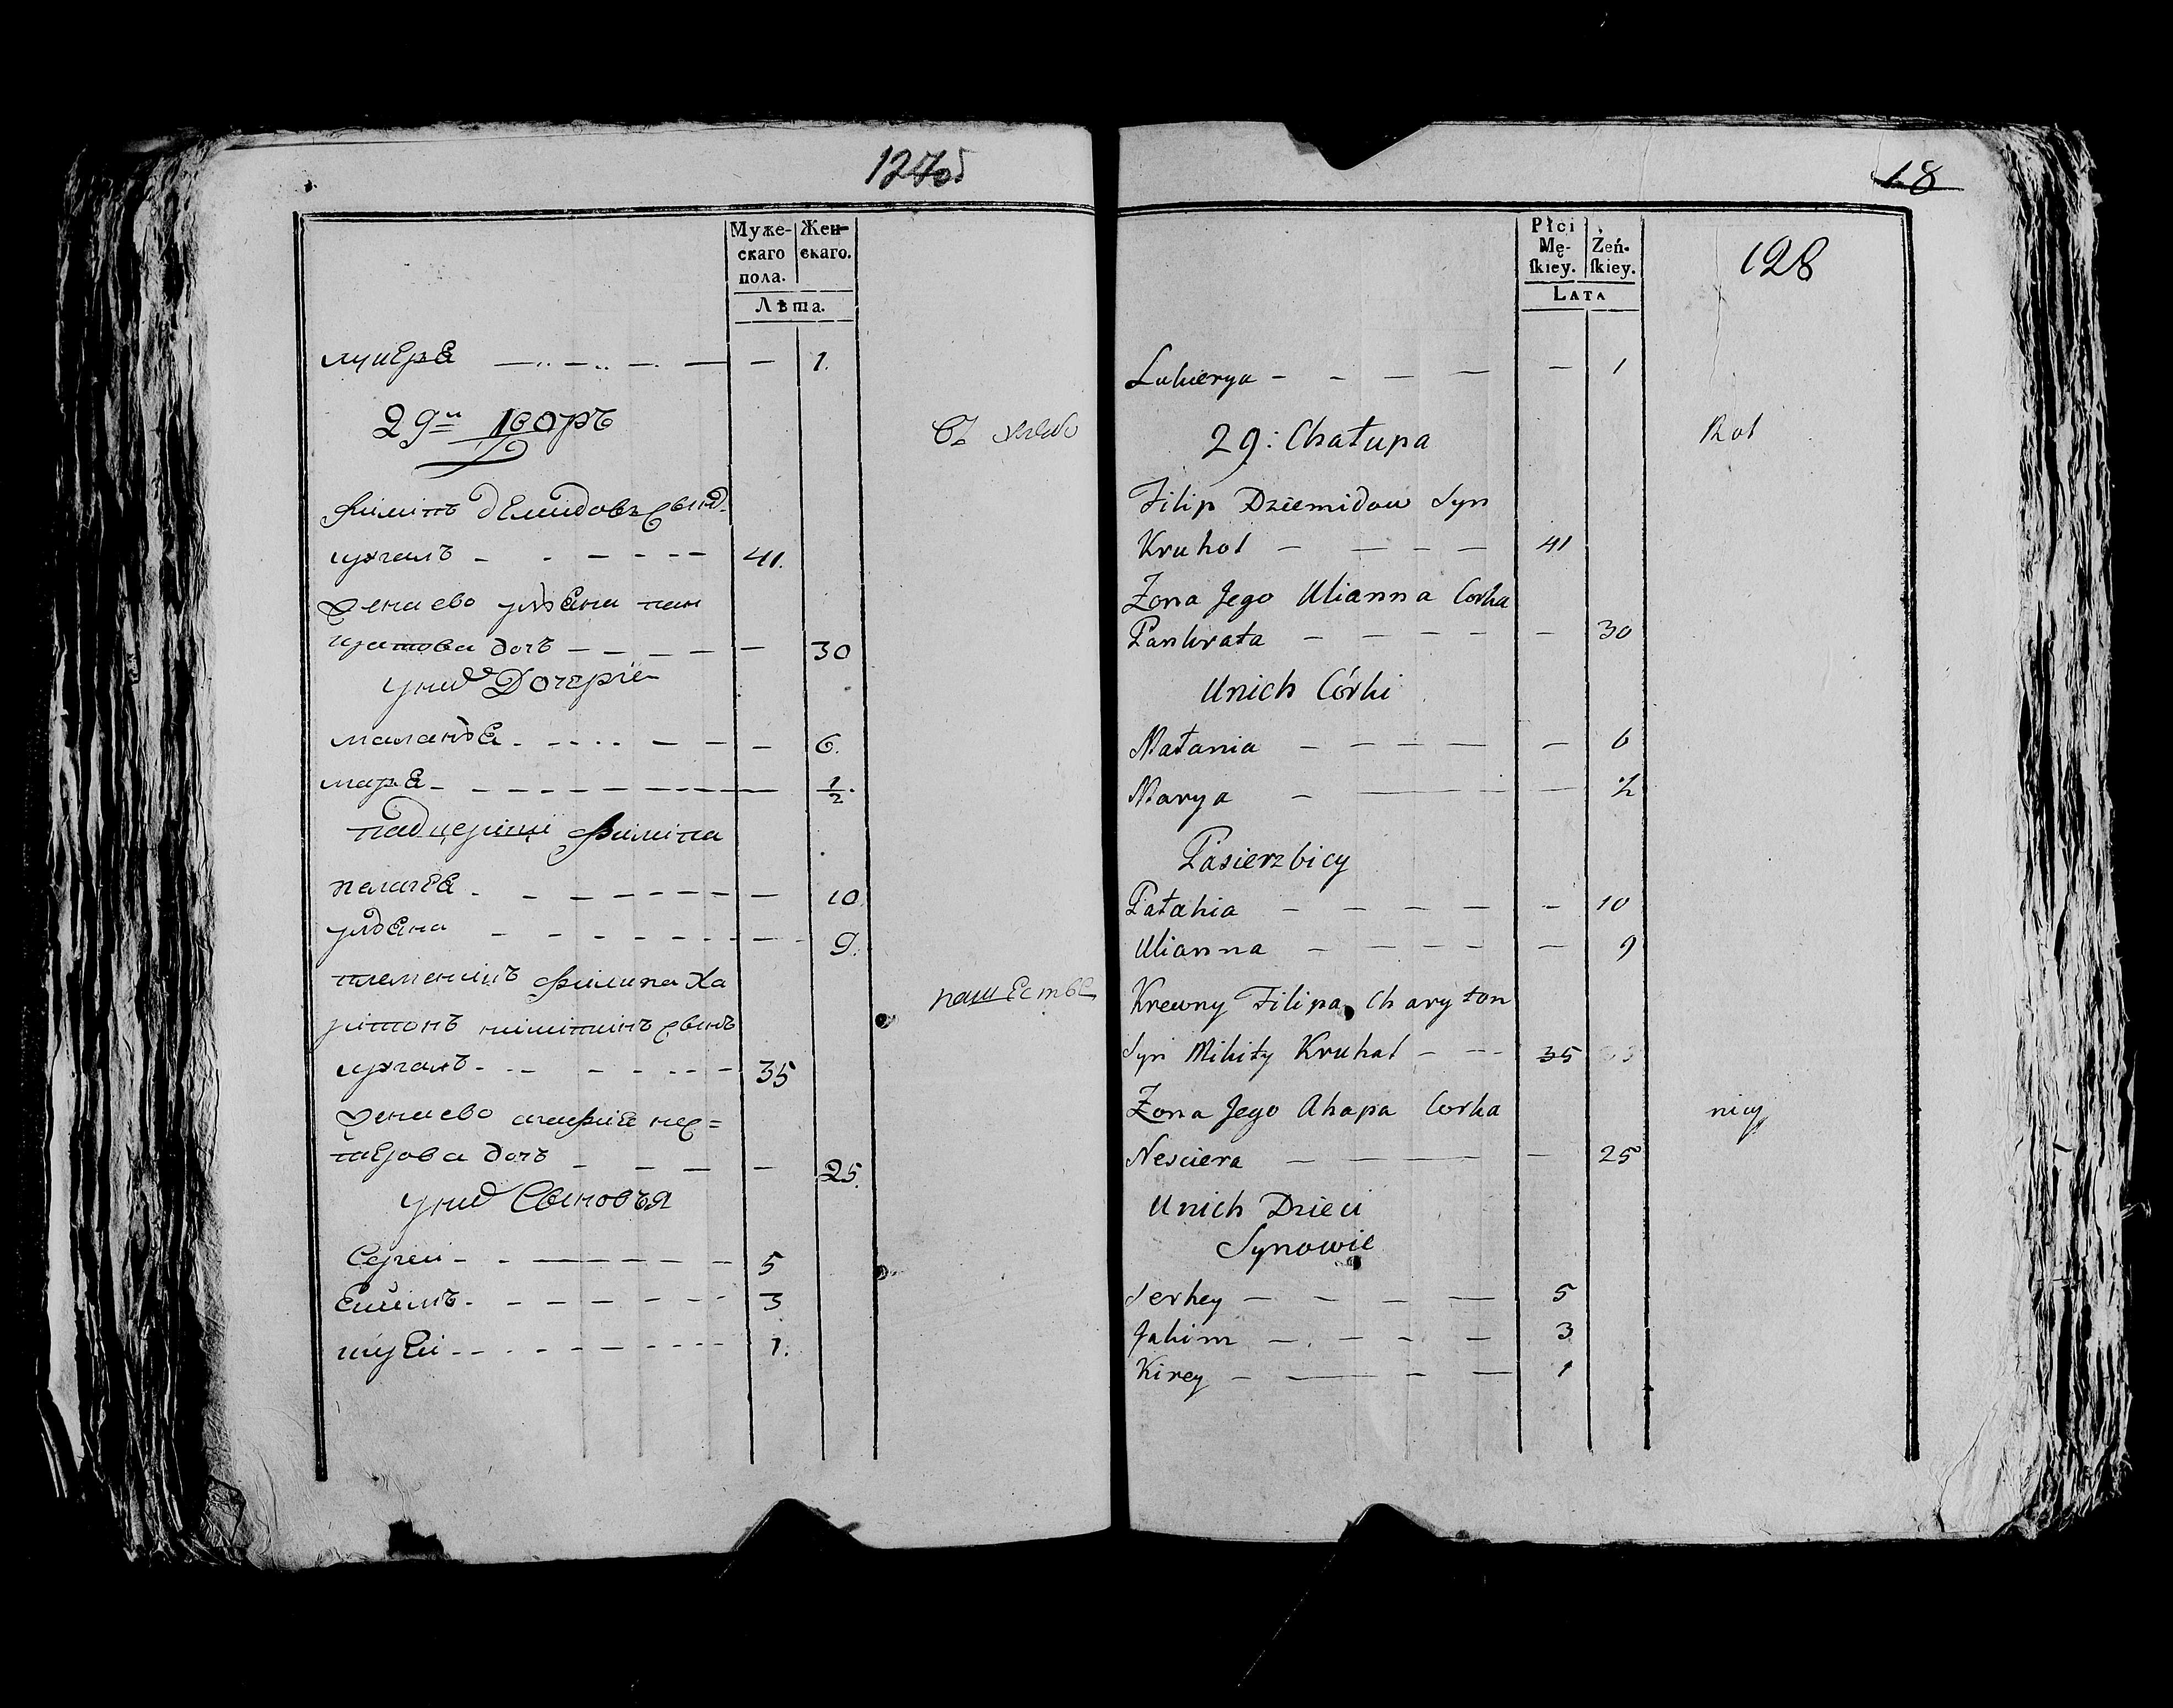 127об
Муже-
скаго
пола.
Жен-
скаго.
Лѣта.
лукеря 1.
29й дворъ
филипъ демидовъ сынъ
кругалъ 41.
жена ево ульяна пан
кратова дочь 30
у них Дочери
маланья 6.
маря 1/2.
падчерицы филипа
палагея 10
ульяна 9.
племеникъ филипа Ха
ритонъ никитинъ сынъ
кругалъ 35
жена ево агафия нес=
терова дочь 25.
у них Сыновья
Сергеи 5
Екимъ 3
1.
18
128
Płci
Mę-
ſkiey.
Żeń-
ſkiey.
Lata
Lukierya 1
29: Chałupa
Rol
Filip Dziemidow Syn
Kruhol 41
Żona Jego Ulianna Corka
Pankrata 30
Unich Córki
Małania 6
Marya 1/2
Pasierzbicy
Pałahia 10
Ulianna 9
Krewny Filipa Charyton
Syn Mikity Kruhal 35
Żona Jego Ahapa Corka
nicy
Nesciera 25
Unich Dzieci
Synowie
Serhey 5
Jakim 3
Kirey 1